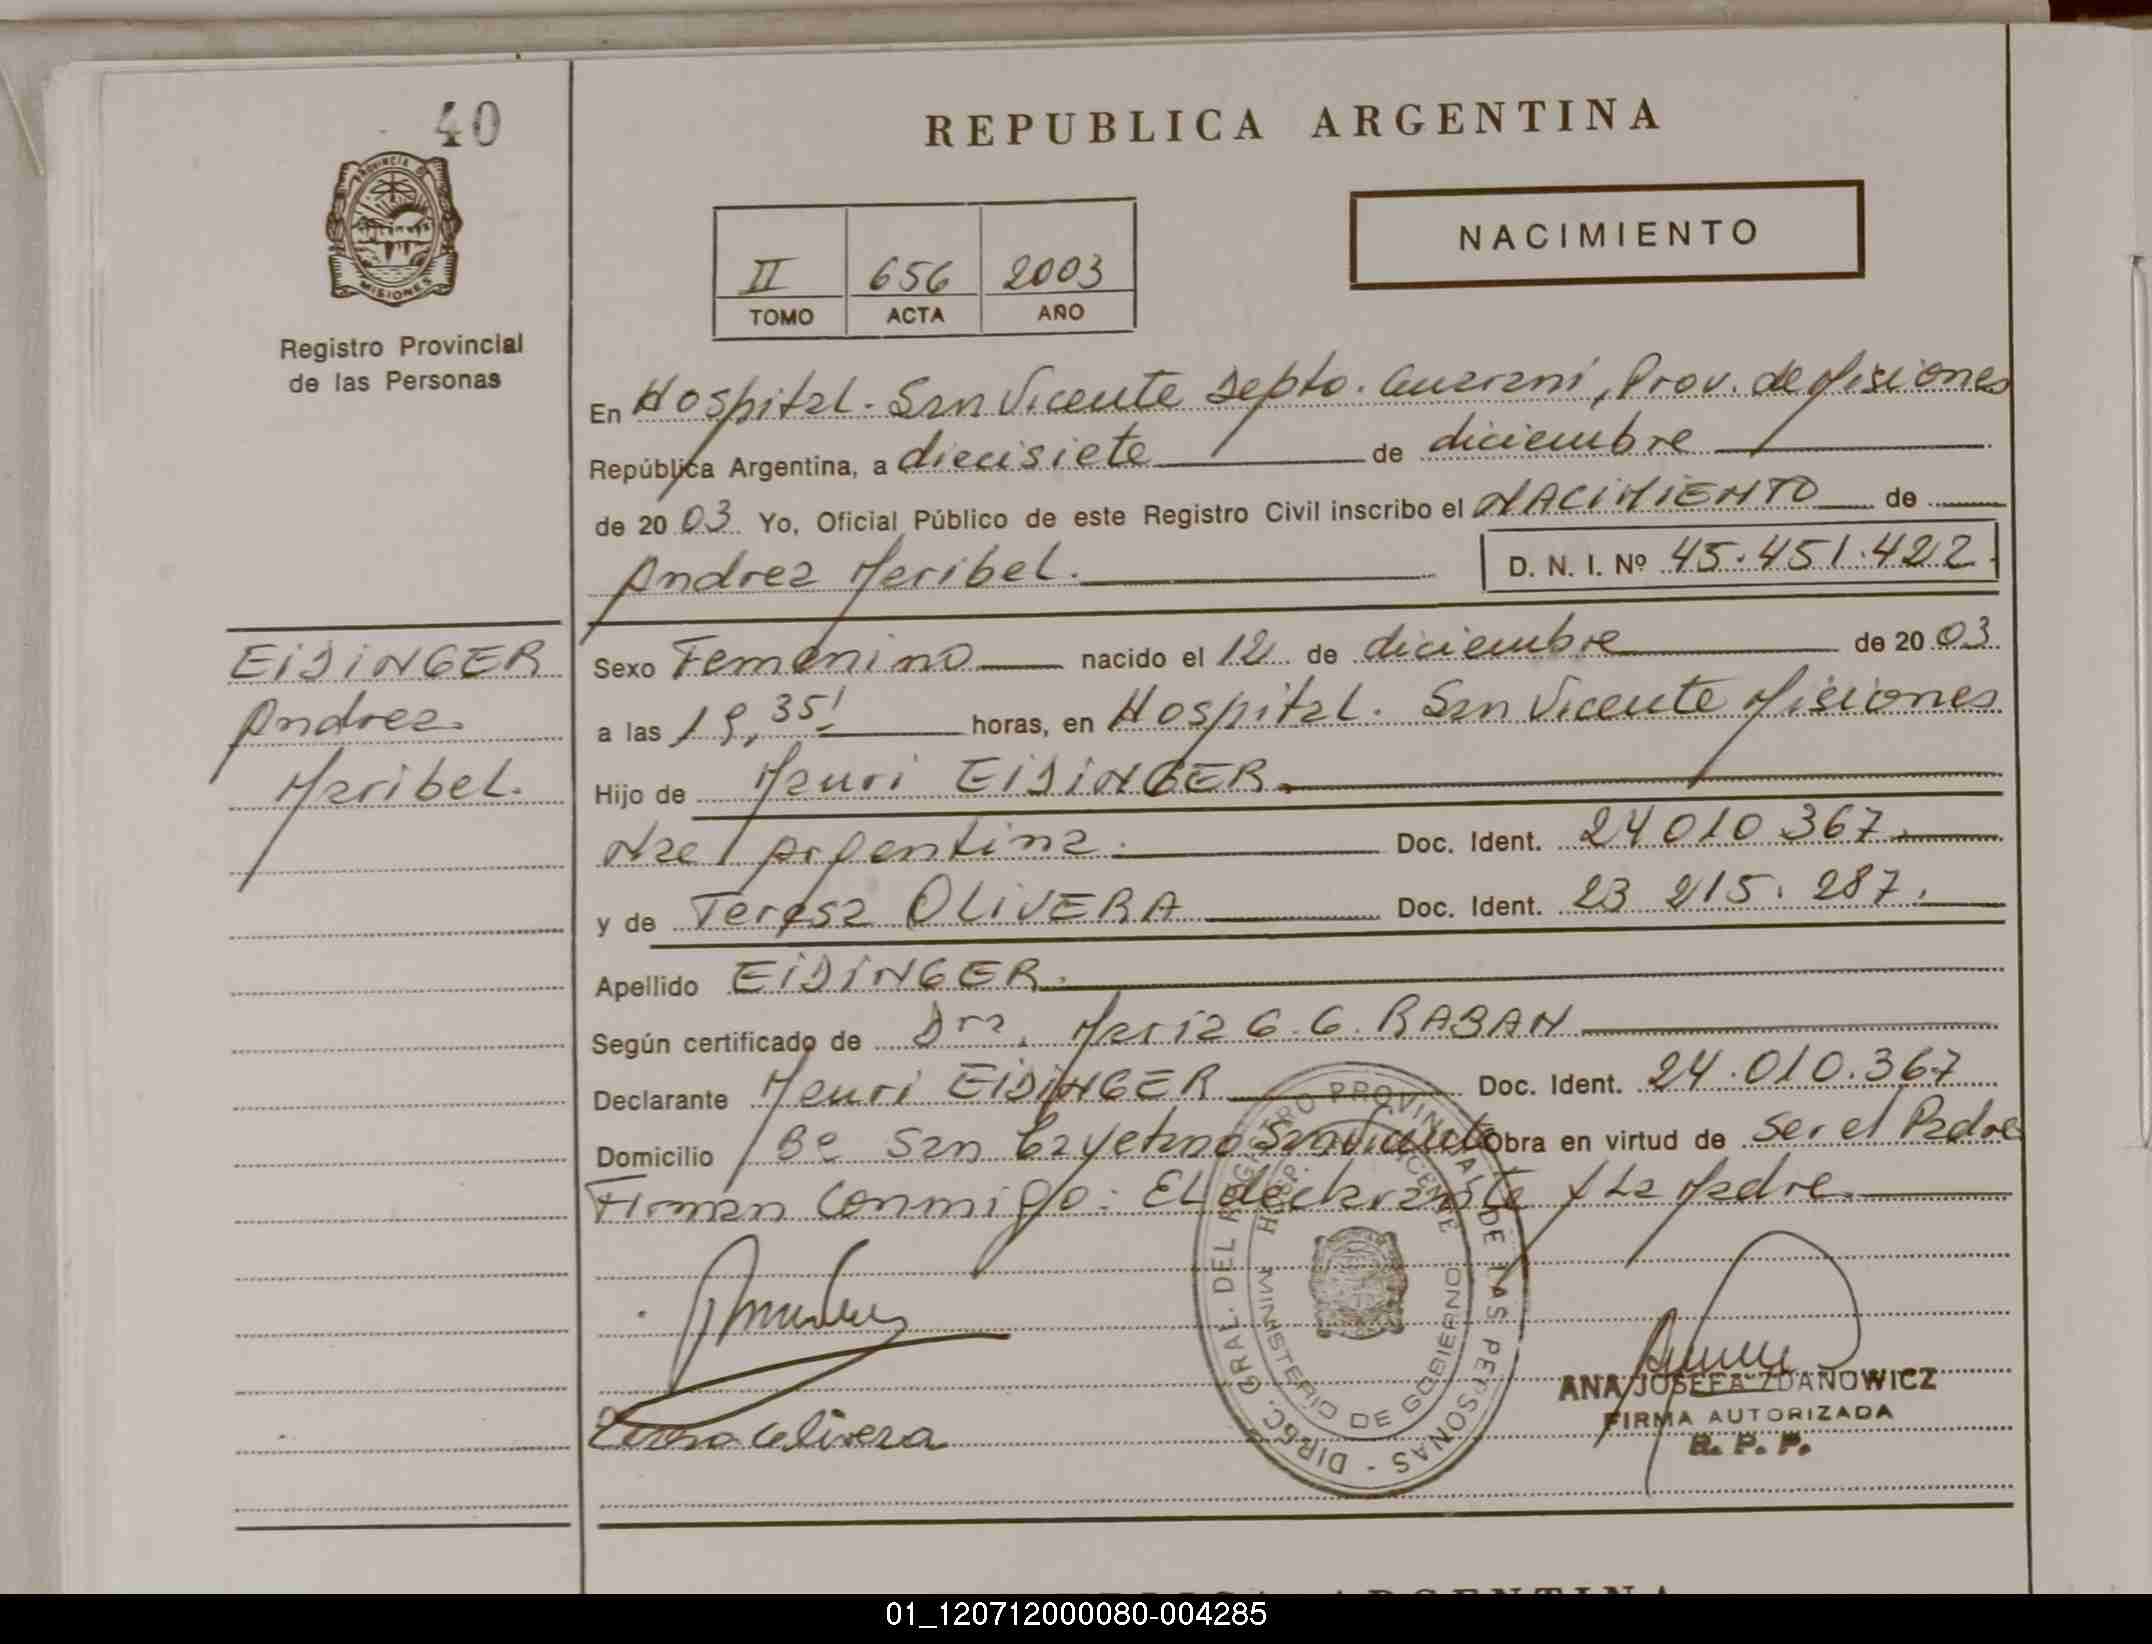 40
REPUBLICA ARGENTINA
PROVINCIA DE
MISIONES
Registro Provincial
de las Personas
II 656 2003
TOMO ACTA AÑO
NACIMIENTO
En Hospital. San Vicente Depto. Guarani, Prov. de Misiones
República Argentina, a diecisiete de diciembre
de 2003 Yo, Oficial Público de este Registro Civil inscribo el NACIMIENTO de
Andrea Maribel.
D. N. I. Nº 45.451.422.
EISINGER
Andrea
Maribel.
Sexo Femenino nacido el 12 de diciembre de 2003
a las 19,35' horas, en Hospital. San Vicente Misiones
Hijo de Mauri EISINGER
Nac Argentina. Doc. Ident. 24 010 367.
y de Teresa OLIVERA Doc. Ident. 23 215. 287.
Apellido EISINGER.
Según certificado de Dra. Maria G. G. RABAN
Declarante Mauri EISINGER Doc. Ident. 24.010.367
Domicilio Bº San Cayetano San Vicente Obra en virtud de ser el Padre
Firman Conmigo: El declarante y La Madre.
DIREC. GRAL. DEL REGISTRO PROVINCIAL DE LAS PERSONAS -
HOSP. VICENTE
MINISTERIO DE GOBIERNO
Teresa Olivera
ANA JOSEFA ZDANOWICZ
FIRMA AUTORIZADA
R. P. P.
01_120712000080-004285